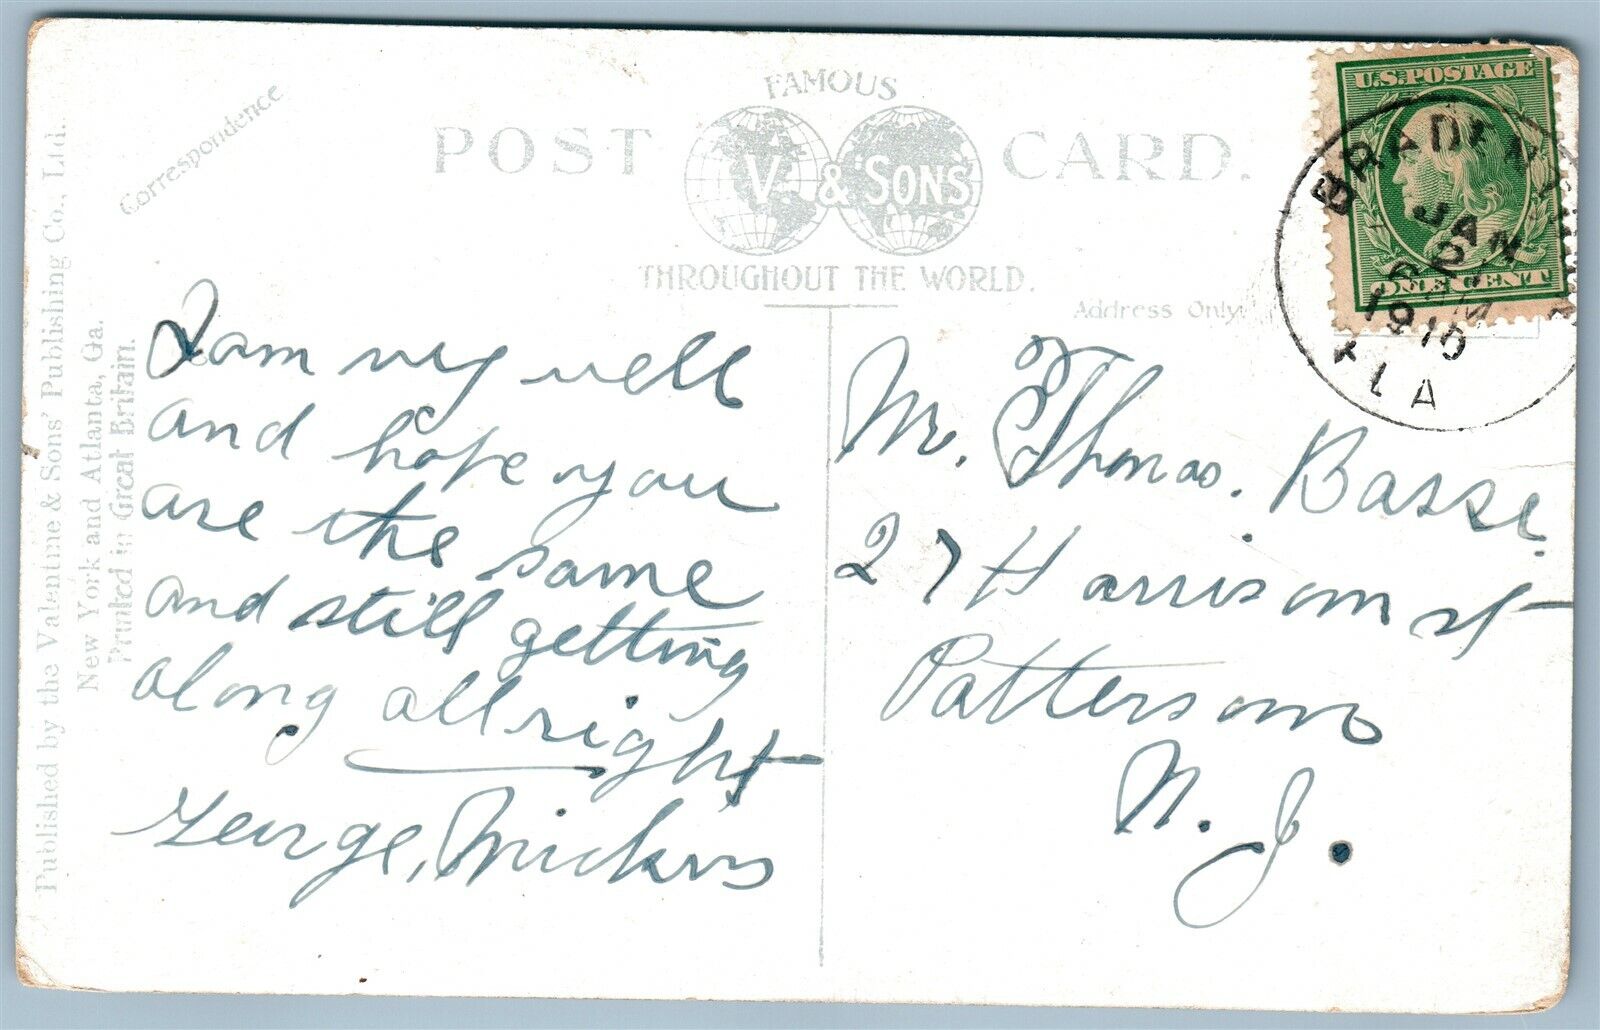 Correspondence
FAMOUS
POST CARD.
V. & SONS
THROUGHOUT THE WORLD.
Address Only
U.S. POSTAGE
ONE CENT
JAN
1910
FLA
Published by the Valentine & Sons' Publishing Co., Ltd.
New York and Atlanta, Ga.
Printed in Great Britain.
I am very well
and hope you
are the same
and still getting
along allright
George,
Mr. Thomas. Basse
27 Harrison st
Patterson
N. J.